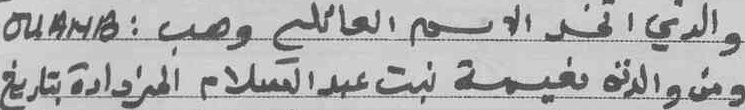 والذي اتخذ الاسم العائلي وهب : OUAHB
ومن والدته نعيمة بنت عبد السلام المزدادة بتاريخ